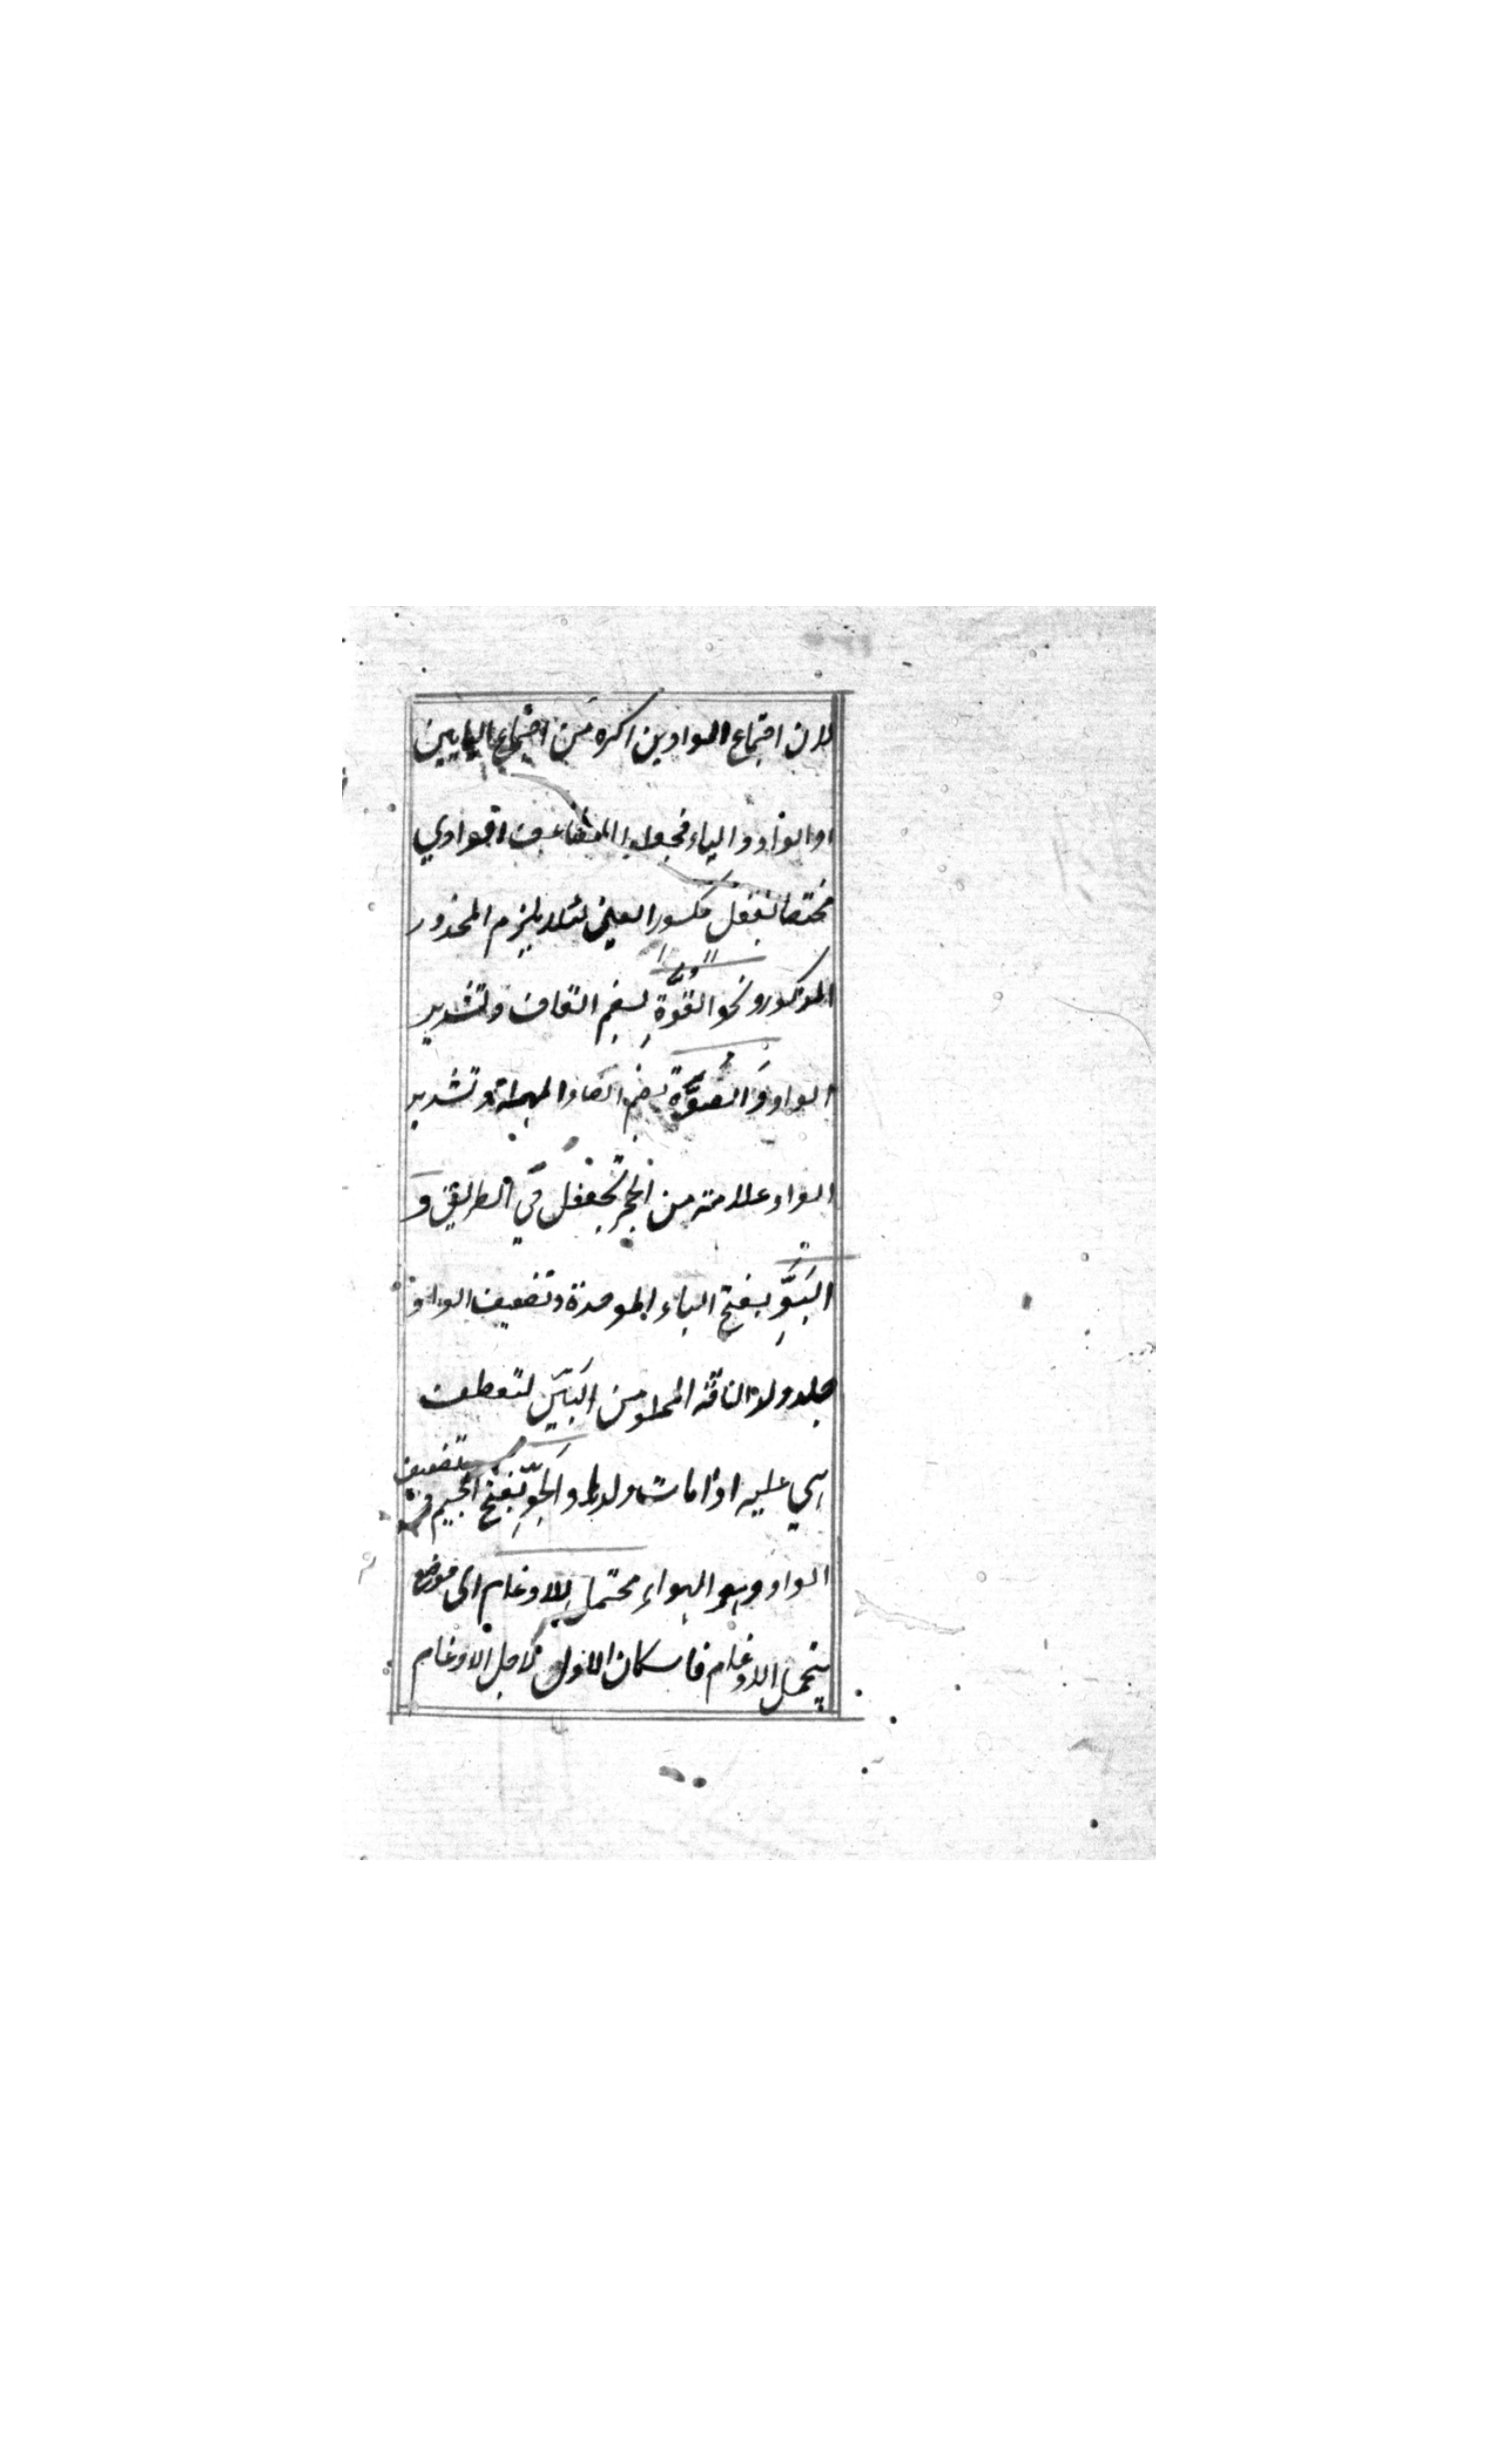 لان اجتماع الواوين اكره من اجتماع اليايين
او الواو والياء فجعلوا المضاعف الواوي
مختصا بفعل مكسور العين لئلا يلزم المحذور
المذكور ونحو القُوَّةِ بضم القاف وتشديد
الواو وَالصُّوَّة بضم الصاد المهملة وتشديد
الواو علامة من الحجر تجعل في الطريق وَ
البَوِّ بفتح الباء الموحدة وتضعيف الواو
جلد ولد الناقة المحشو من التبن لتعطف
هي عليه اذا مات ولدها والجَوِّ بفتح الجيم وتضعيف
الواو وهو الهواء محتمل للادغام اى موضع
يتحمل الادغام فاسكان الاول لاجل الادغام